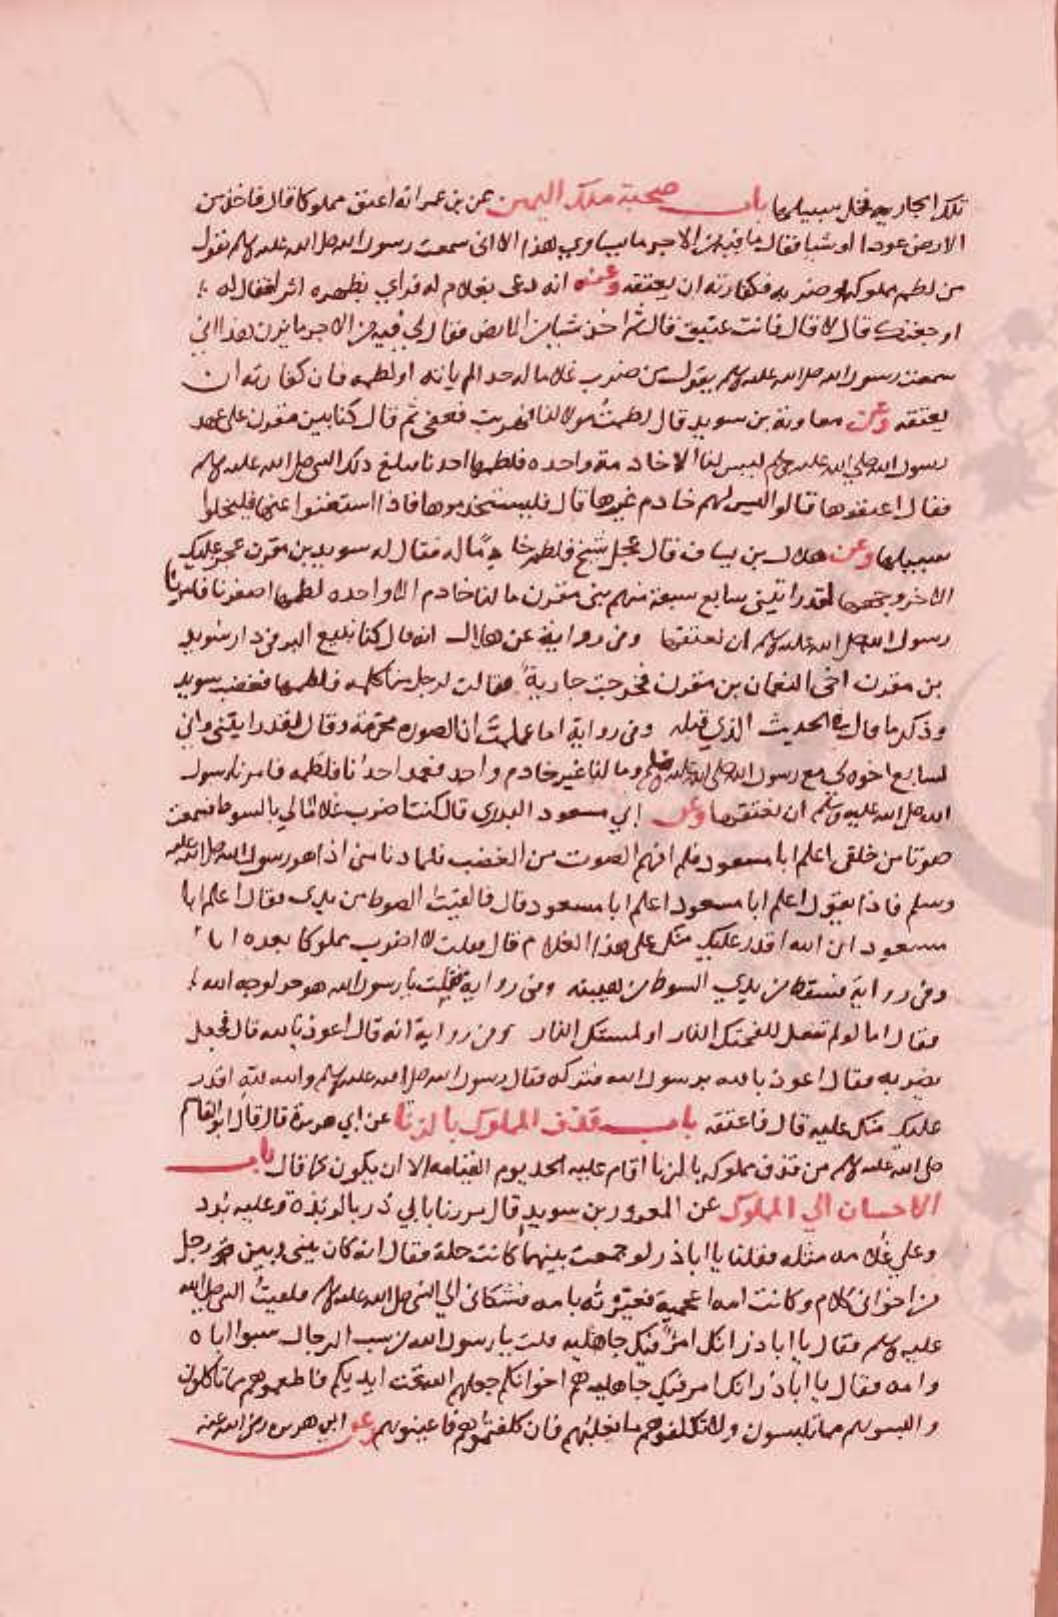 تلك الجاريه فخل سبيلها باب صحبة ملك اليمين عن بن عمر انه اعتق مملوكا قال فاخذ من
الارض عودا او شيا فقال ما فيه من الاجر ما يساوي هذا الا اني سمعت رسول الله صلى الله عليه وسلم يقول
من لطم مملوكه او ضربه فكفارته ان يعتقه وعنه انه دعى بغلام له فراي بظهره اثر فقال له
اوجعتك قال لا قال فانت عتيق قال ثم اخذ شيا من الارض فقال لي فيه من الاجر ما يزن هذا اني
سمعت رسول الله صلى الله عليه وسلم يقول من ضرب غلاما له حدا لم ياته او لطمه فان كفارته ان
يعتقه وعن معاوية بن سويد قال لطمت مولا لنا فهربت فعفى ثم قال كنا بين مقرن على عهد
رسول الله صلى الله عليه وسلم ليس لنا الا خادمة واحده فلطمها احدنا فبلغ ذلك النبي صلى الله عليه وسلم
فقال اعتقوها قالوا ليس لهم خادم غيرها قال فليستخدموها فاذا استغنوا عنها فليخلوا
سبيلها وعن هلال بن يساف قال عجل شيخ فلطم خادما له فقال له سويد بن مقرن عجز عليك
الا حر وجهها لقد رايتني سابع سبعة منهم بني مقرن ما لنا خادم الا واحده لطمها اصغرنا فامرنا
رسول الله صلى الله عليه وسلم ان نعتقها وفي رواية عن هلال انه قال كنا نبيع البز في دار سويد
بن مقرن اخى النعمان بن مقرن فخرجت جارية فقالت لرجل منا كلمه فلطمها فغضب سويد
وذكر ما قال في الحديث الذي قبله وفي رواية اما علمت ان الصوره محرمة وقال لقد رايتني واني
لسابع اخوه لي مع رسول الله صلى الله عليه وسلم وما لنا غير خادم واحد فعمد احدنا فلطمه فامرنا رسول
الله صلى الله عليه وسلم ان نعتقها وعن ابي مسعود البدري قال كنت اضرب غلاما لي بالسوط فسمعت
صوتا من خلفى اعلم ابا مسعود فلم افهم الصوت من الغضب فلما دنا منى اذا هو رسول الله صلى الله عليه
وسلم فاذا يقول اعلم ابا مسعود اعلم ابا مسعود قال فالقيت الصوط من يدي فقال اعلم ابا
مسعود ان الله اقدر عليك منك على هذا الغلام قال فقلت لا اضرب مملوكا بعده ابدا
وفى رواية فسقط من يدي السوط من هيبته وفى رواية فقلت يا رسول الله هو حر لوجه الله
فقال اما لو لم تفعل للفحتك النار او لمستك النار وفى رواية انه قال اعوذ بالله قال فجعل
يضربه فقال اعوذ بالله برسول الله فتركه فقال رسول الله صلى الله عليه وسلم والله لله اقدر
عليك منك عليه قال فاعتقه باب قذف المملوك بالزنا عن ابي هريرة قال قال ابو القاسم
صلى الله عليه وسلم من قذف مملوكه بالزنا اقام عليه الحد يوم القيامه الا ان يكون كما قال باب
الاحسان الي المملوك عن المعرور بن سويد قال مررنا بابي ذر بالربذة وعليه برد
وعلي غلامه مثله فقلنا يا اباذر لو جمعت بينهما كانت حلة فقال انه كان بينى وبين رجل
من اخوانى كلام وكانت امه اعجمية فعيرته بامه فشكانى الي النبي صلى الله عليه وسلم فلقيت النبي صلى الله
عليه وسلم فقال يا اباذر انك امرؤ فيك جاهليه قلت يا رسول الله من سب الرجال سبوا اباه
وامه فقال يا اباذر انك امر فيك جاهليه هم اخوانكم جعلهم الله تحت ايديكم فاطعموهم مما تاكلون
والبسوهم مما تلبسون ولا تكلفوهم ما يغلبهم فان كلفتموهم فاعينوهم وعن ابي هريرة رضى الله عنه